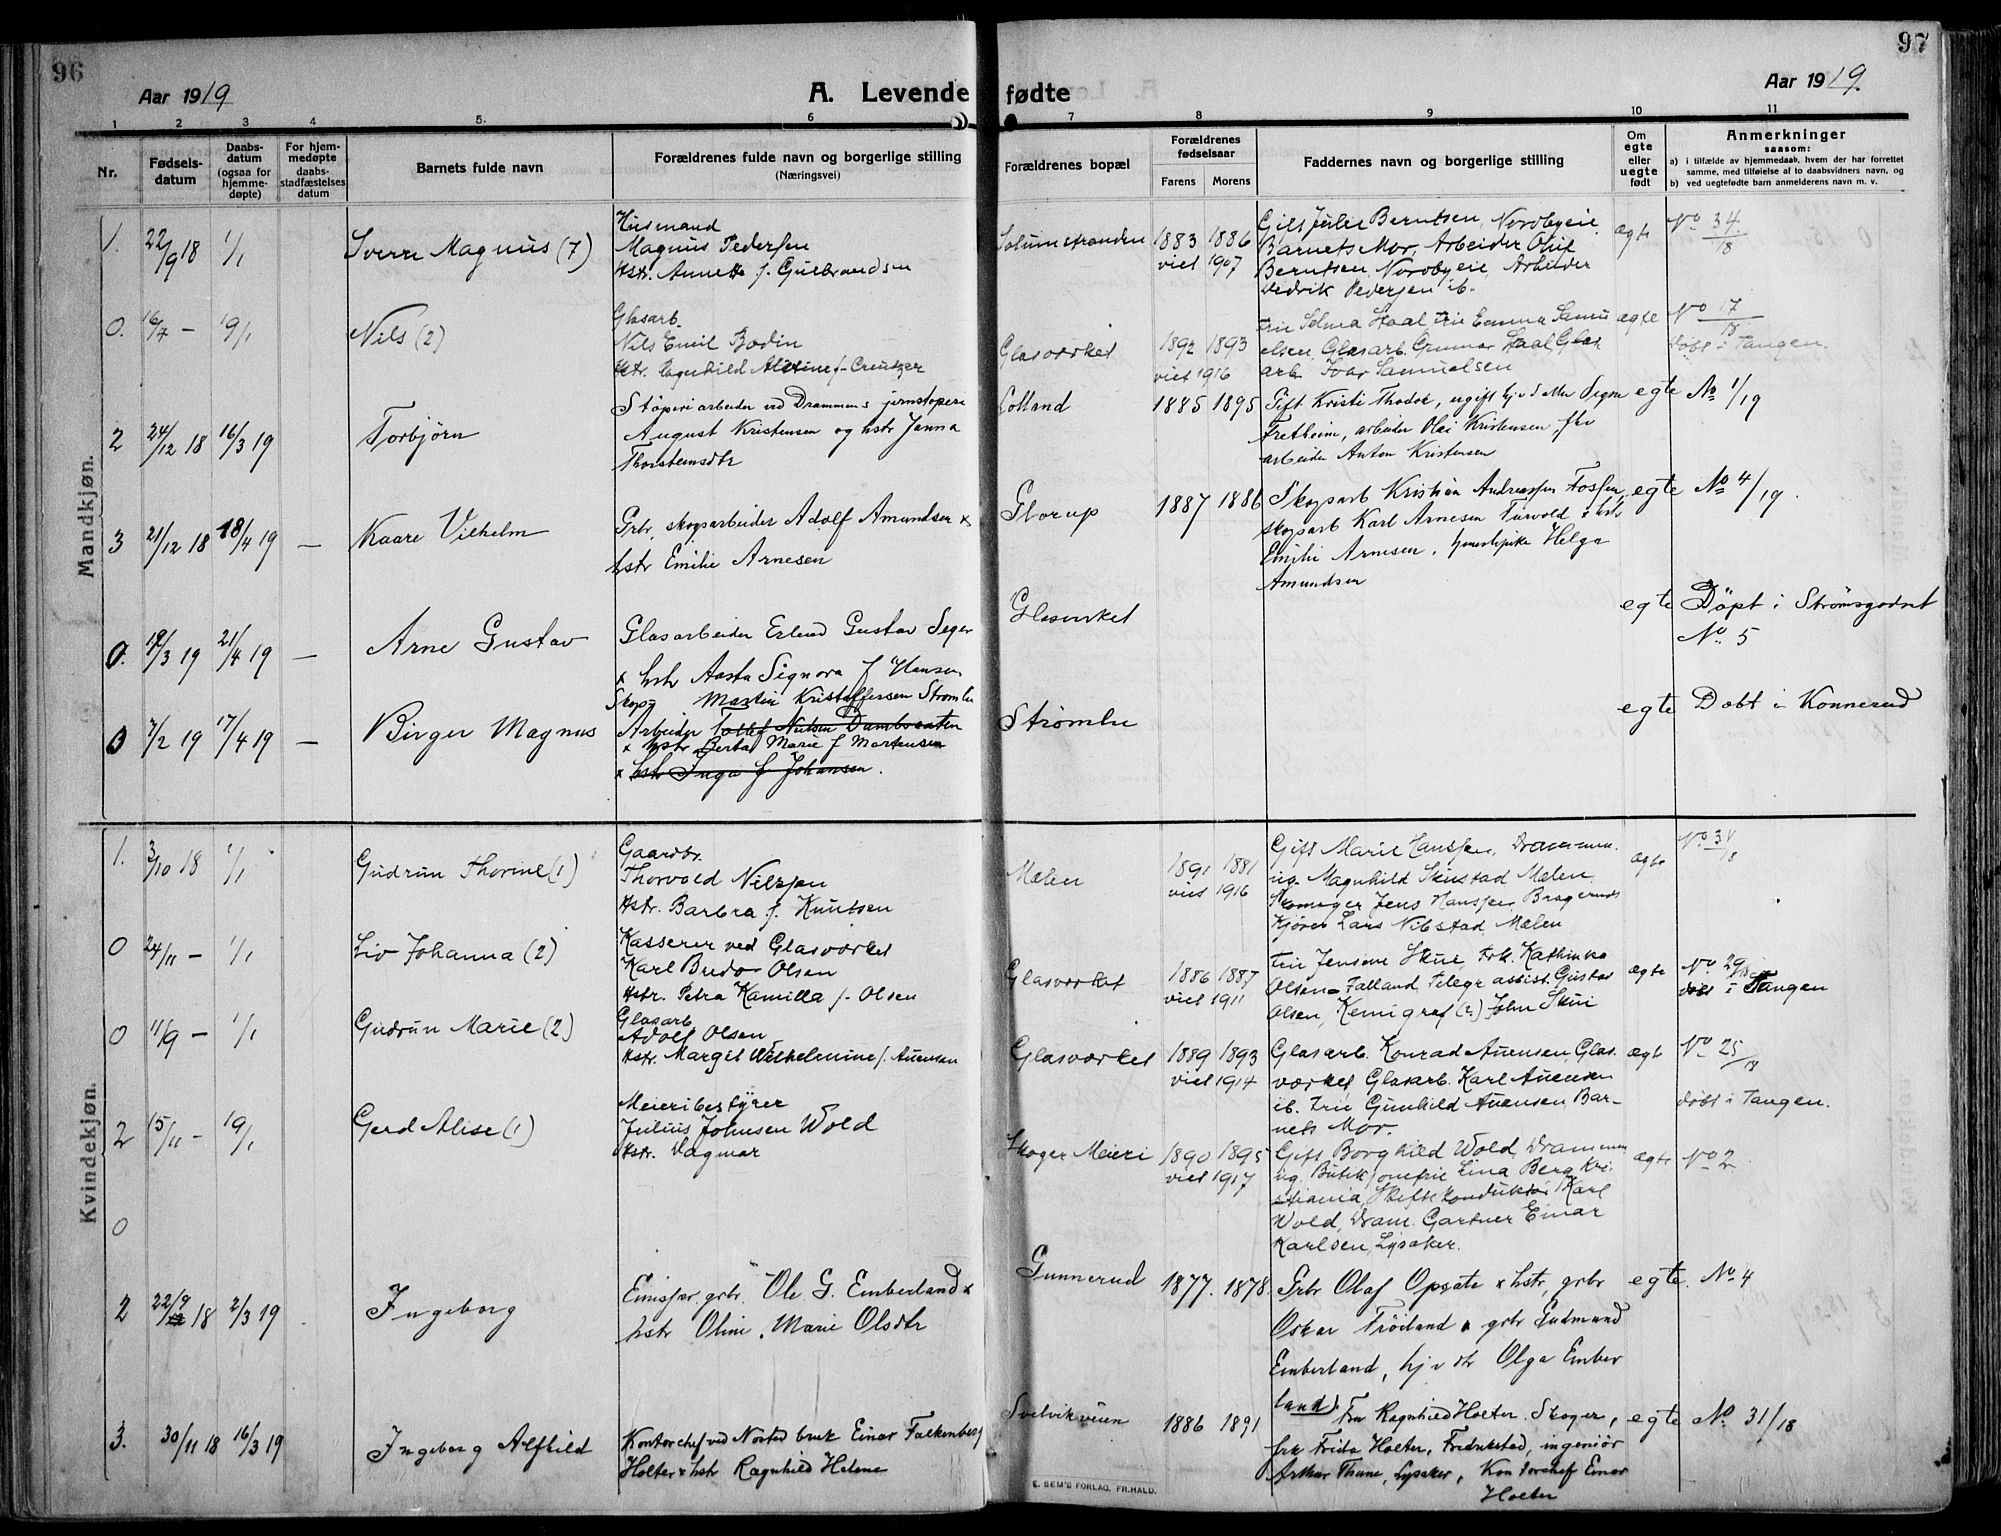 96
97
Aar 1919
A. Levende fødte
Aar 1919.
1 2 3 4 5. 6 7 8 9 10 11
Nr.
Fødsels-
datum
Daabs-
datum
(ogsaa for
hjemme-
døpte)
For hjem-
medøpte
daabs-
stadfæstelses
datum
Barnets fulde navn
Forældrenes fulde navn og borgerlige stilling
(Næringsvei)
Forældrenes bopæl
Forældrenes
fødselsaar
Farens Morens
Faddernes navn og borgerlige stilling
Om
egte
eller
uegte
født
Anmerkninger
saasom:
a) i tilfælde av hjemmedaab, hvem der har forrettet
samme, med tilføielse af to daabsvidners navn, og
b) ved uegtefødte barn anmelderens navn m. v.
Mandkjøn.
1. 22/9 18 1/1 Sverre Magnus (7)
Husmand
Magnus Pedersen
Hstr. Annette f. Gulbrandsen
Solumstranden
1883 1886
viet 1907
Gift Julie Berntsen, Nordbyeie,
Barnets Mor, Arbeider Oluf
Berntsen, Nordbyeie, Arbeider
Pedersen ib.
ægte
No 34/18
0. 16/7 – 19/1 Nils (2)
Glasarb.
Nils Emil Bodin
Hstr. Ragnhild Alvine f. Creutzer
Glasværket
1892 1893
viet 1916
Frie Selma Staal, Frie Emma Samu
elsen, Glasarb. Gunnar Staal, Glas
arb. Ivar Samuelsen
ægte
No 17/18
døbt i Tangen.
2 24/12 18 16/3 19 Torbjørn
Støperiarbeider ved Drammens jernstøperi
August Kristensen og hstr Janna
Thorstensdtr
Lolland
1885 1895
Gift Kristi Thodok, ugift hj v d Mor Signe
Fretheim, arbeider Olai Kristensen, fhv
arbeider Anton Kristensen
egte
No 1/19
3 21/12 18 18/4 19 – Kaare Vilhelm
Grbr, skogsarbeider Adolf Amundsen x
hstr Emilie Arnesen
Glorup
1887 1886
Skogsarb Kristian Andreassen Fossen,
skogsarb Karl Arnesen Furvold x hstr
Emilie Arnesen, tjenestepike Helga
Amundsen
egte
No 4/19.
0. 19/3 19 21/4 19 – Arne Gustav
Glasarbeider Erlend Gustav Seger
x hstr Aasta Signora f Hansen
Glasverket
egte
Døpt i Strømsgodset
No 5
0 7/2 19 17/4 19 – Birger Magnus
Skogs Martin Kristoffersen Strømlie
Arbeider Tollef Nilsen Dambraaten
x hstr Berta Marie f Martensen
x hstr Inga f Johansen.
Strømlie
egte
Døbt i Konnerud
Kvindekjøn.
1. 3/10 18 1/1 Gudrun Thorine (1)
Gaardbr.
Thorvold Nilssen
Hstr. Barbra f. Knutsen
Mælen
1891 1881
viet 1916
Gift Marie Hanssen, Drammen.
ug. Magnhild Skustad Mælen.
Skomager Jens Hanssen Bragernes
Kjører Lars Nibstad. Mælen
ægte
No 31/18
0 24/11 – 1/1 Liv Johanna (2)
Kasserer ved Glasværket
Karl Bredo Olsen
Hstr. Petra Kamilla f. Olsen
Glasværket
1886 1887
viet 1911
Frie Jensine Skui, Frk. Kathinka
Olsen Falland, Telegr. assist. Gustav
Olsen, Kemigraf (?) John Skui
ægte
No. 29/18
døbt i Tangen
0 11/9 – 1/1 Gudrun Marie (2)
Glasarb
Adolf Olsen
Hstr. Margit Wilhelmine f. Auensen
Glasværket
1889 1893
viet 1914
Glasarb. Konrad Auensen, Glas.
værket, Glasarb. Karl Auensen
ib. Frie Gunhild Auensen, Bar-
nets Mor.
ægte
No 25/18
døbt i Tangen.
2 15/11 – 19/1 Gerd Alise (1)
Meieribestyrer
Julius Johnsen Wold
Hstr. Dagmar
Skoger Meieri
1890 1895
viet 1917
Gift Borghild Wold, Drammen
ug. Butikjomfrie Lina Berg, Kri
stiania, Skiftekonduktør Karl
Wold, Dram. Gartner Einar
Karlsen, Lysaker.
ægte
No 2.
0
2 22/9 18 2/3 19 Ingeborg
Emissær, grbr. Ole G. Emberland x
hstr Oline Marie Olsdtr
Gunnerud
1877. 1878.
Grbr Olaf Opsate x hstr, grbr
Oskar Frøiland, grbr Gudmund
Emberland, hj v str Olga Ember
land.
egte.
No. 4
3. 30/11 18 16/3 19 Ingeborg Alfhild
Kontorchef ved Nøsted bruk Einar Falkenberg
Holter x hstr Ragnhild Helene
Svelvikveien
1886 1891
Fru Ragnhild Holter. Skoger,
frk Frida Holter, Fredrikstad, ingeniør
Arthur Thune, Lysaker, Kontorchef Einar
Holter
egte
No. 31/18
E. SEM'S FORLAG, FR.HALD.